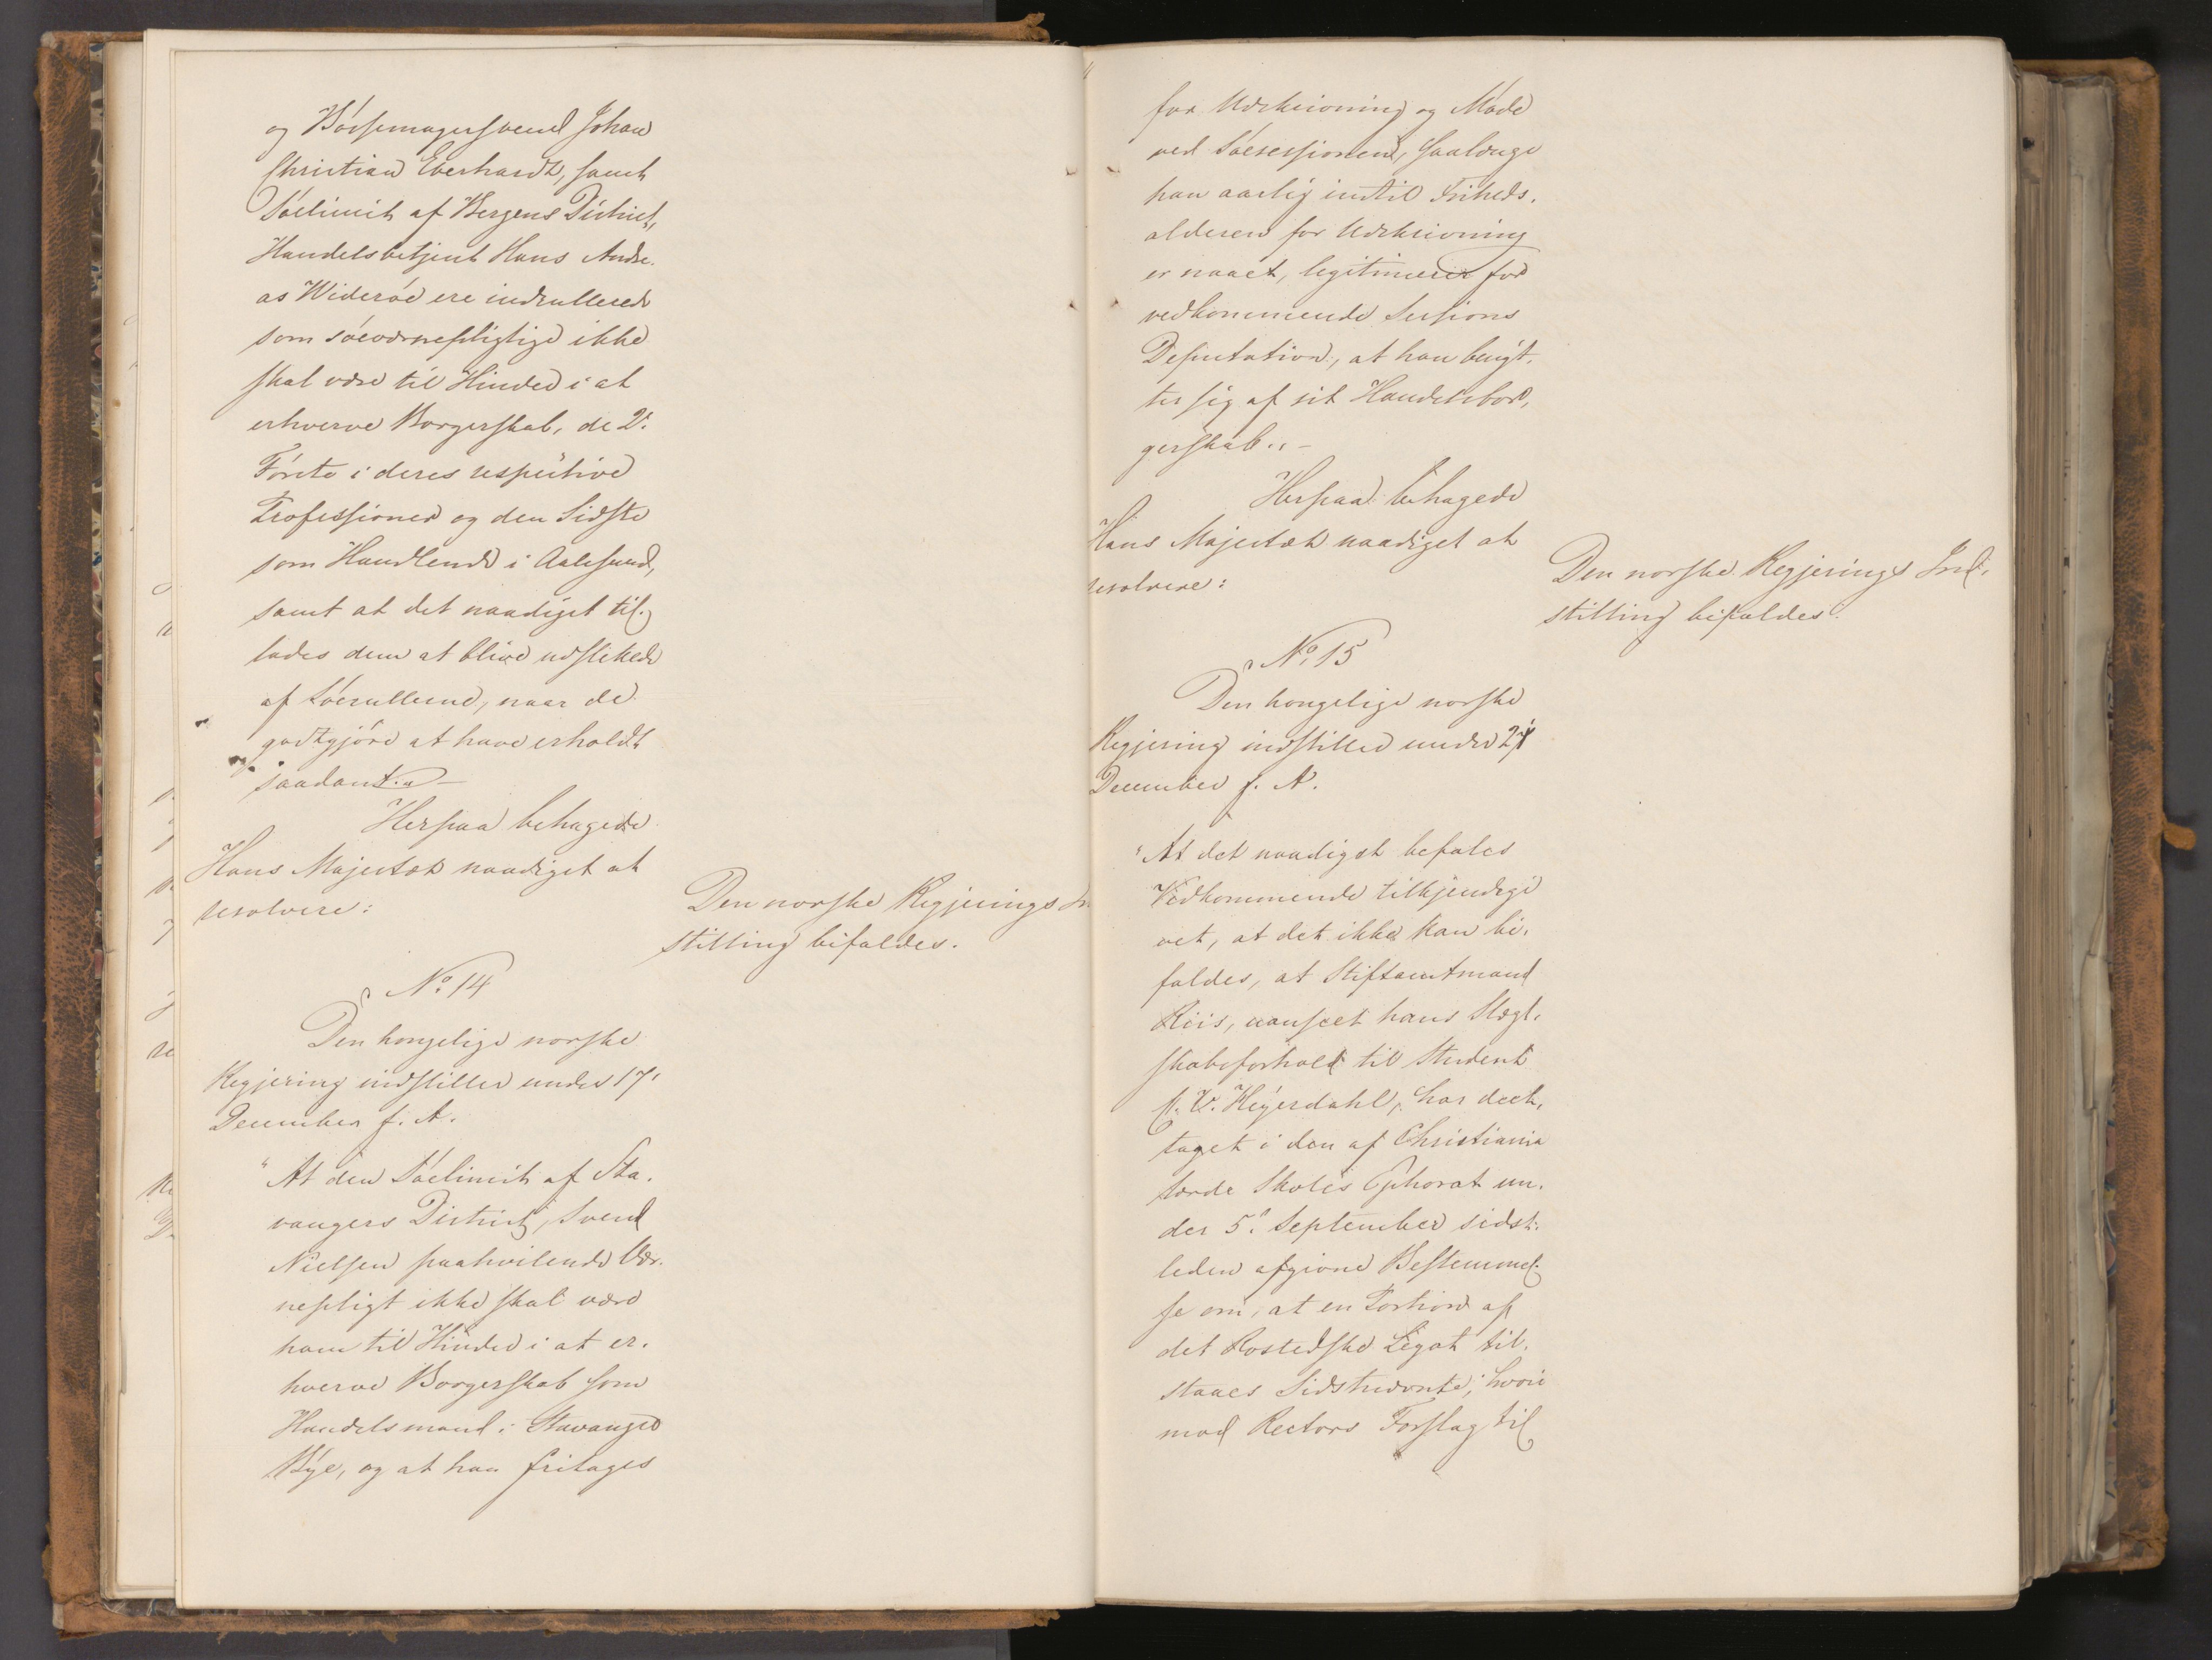 og Bøssemagersvend Johan
Christian Eberhardt, samt
Søelimit af Bergens District,
Handelsbetjent Hans Andre-
as Widerøe ere indrullerede
som søeværnepligtige ikke
skal være til Hinder i at
erhverve Borgerskab, de 2de
Første i deres respective
Professioner og den Sidste
som Handlende i Aalesund,
samt at det naadigst til-
lades dem at blive udslettede
af Søerullerne, naar de
godtgjøre at have erholdt
saadant."
Herpaa behagede
Hans Majestæt naadigst at
resolvere:
Den norske Regjerings In
stilling bifaldes.
No 14
Den kongelige norske
Regjering indstiller under 17de
December f. A.
"At den Søelimit af Sta-
vangers District, Svend
Nielsen paahvilende Vær-
nepligt ikke skal være
ham til Hinder i at er-
hverve Borgerskab som
Handelsmand i Stavanger
Bye, og at han fritages
for Udskrivning og Møde
ved Søesessionen, saalænge
han aarlig indtil Friheds-
alderen for Udskrivning
er naaet, legitimerer for
vedkommende Sessions
Deputation, at han benyt-
ter sig af sit Handelsbor-
gerskab."
Herpaa behagede
Hans Majestæt naadigst at
resolvere:
Den norske Regjerings Ind-
stilling bifaldes.
No 15
Den kongelige norske
Regjering indstiller under
December f. A.
"At det naadigst befales
Vedkommende tilkjendegi
vet, at det ikke kan bi-
faldes, at Stiftamtmand
Riis, uanseet hans Slægt-
skabsforhold til Student
Heyerdahl, har deel-
taget i den af Christiania
lærde Skoles Ephorat un-
der 5te September sidst-
leden afgivne Bestemmel-
se om, at en Portion af
det Rostedske Legat til-
staaes Sidstnævnte, hvori
mod Rectors Forslag til